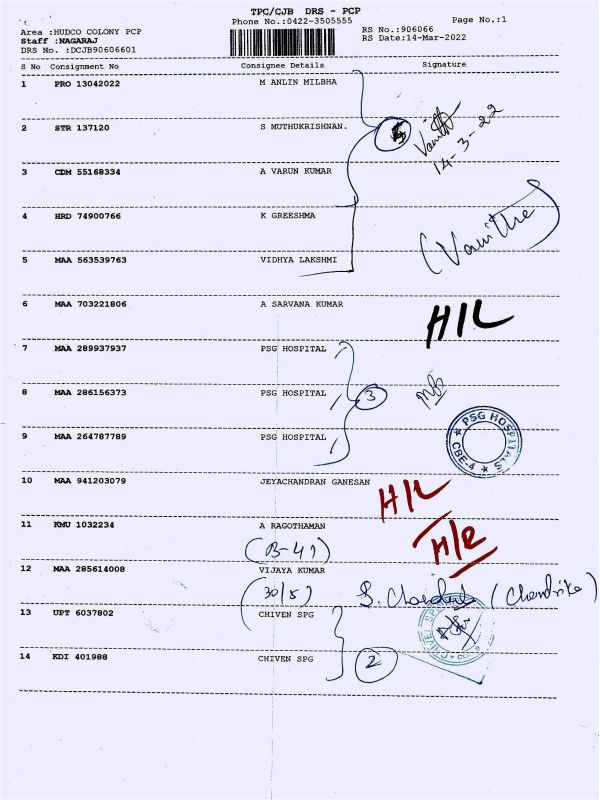 TPC/CJB DRS - PCP
Phone No.:0422-3505555 Page No.:1
Area :HUDCO COLONY PCP RS No.:906066
Staff :NAGARAJ RS Date:14-Mar-2022
DRS No. :DCJB90606601
S No Consignment No Consignee Details Signature
1 PRO 13042022 M ANLIN MILBHA
2 STR 137120 S MUTHUKRISHNAN.
Vanitha
14-3-22
3 CDM 55168334 A VARUN KUMAR
4 HRD 74900766 K GREESHMA
(Vanitha)
5 MAA 563539763 VIDHYA LAKSHMI
6 MAA 703221806 A SARVANA KUMAR
H/L
7 MAA 289937937 PSG HOSPITAL
8 MAA 286156373 PSG HOSPITAL 3
9 MAA 264787789 PSG HOSPITAL
PSG HOSPITALS
CBE-4
10 MAA 941203079 JEYACHANDRAN GANESAN
H/L
11 KMU 1032234 A RAGOTHAMAN
(B-41) H/L
12 MAA 285614008 VIJAYA KUMAR
(30/5) (Chandrika)
13 UPT 6037802 CHIVEN SPG
14 KDI 401988 CHIVEN SPG 2